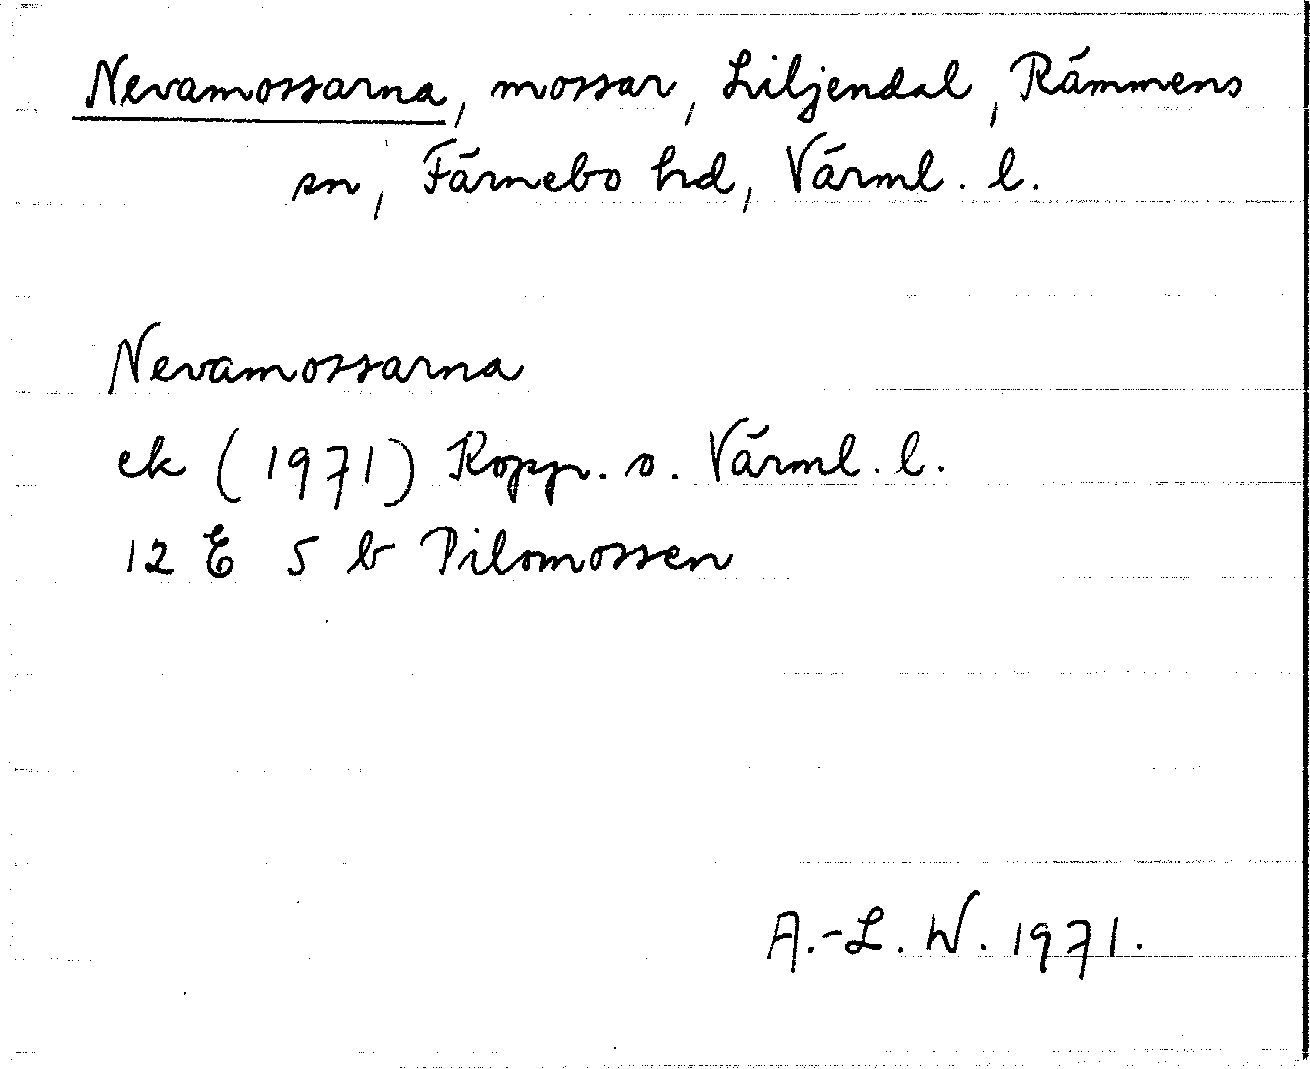 Nevamossarna, mossar, Liljendal, Rämmens
sn, Färnebo hd, Värml. l.
Nevamossarna
ek (1971) Kopp. o. Värml. l.
12 E 5 b Pilomossen
A.-L. W. 1971.